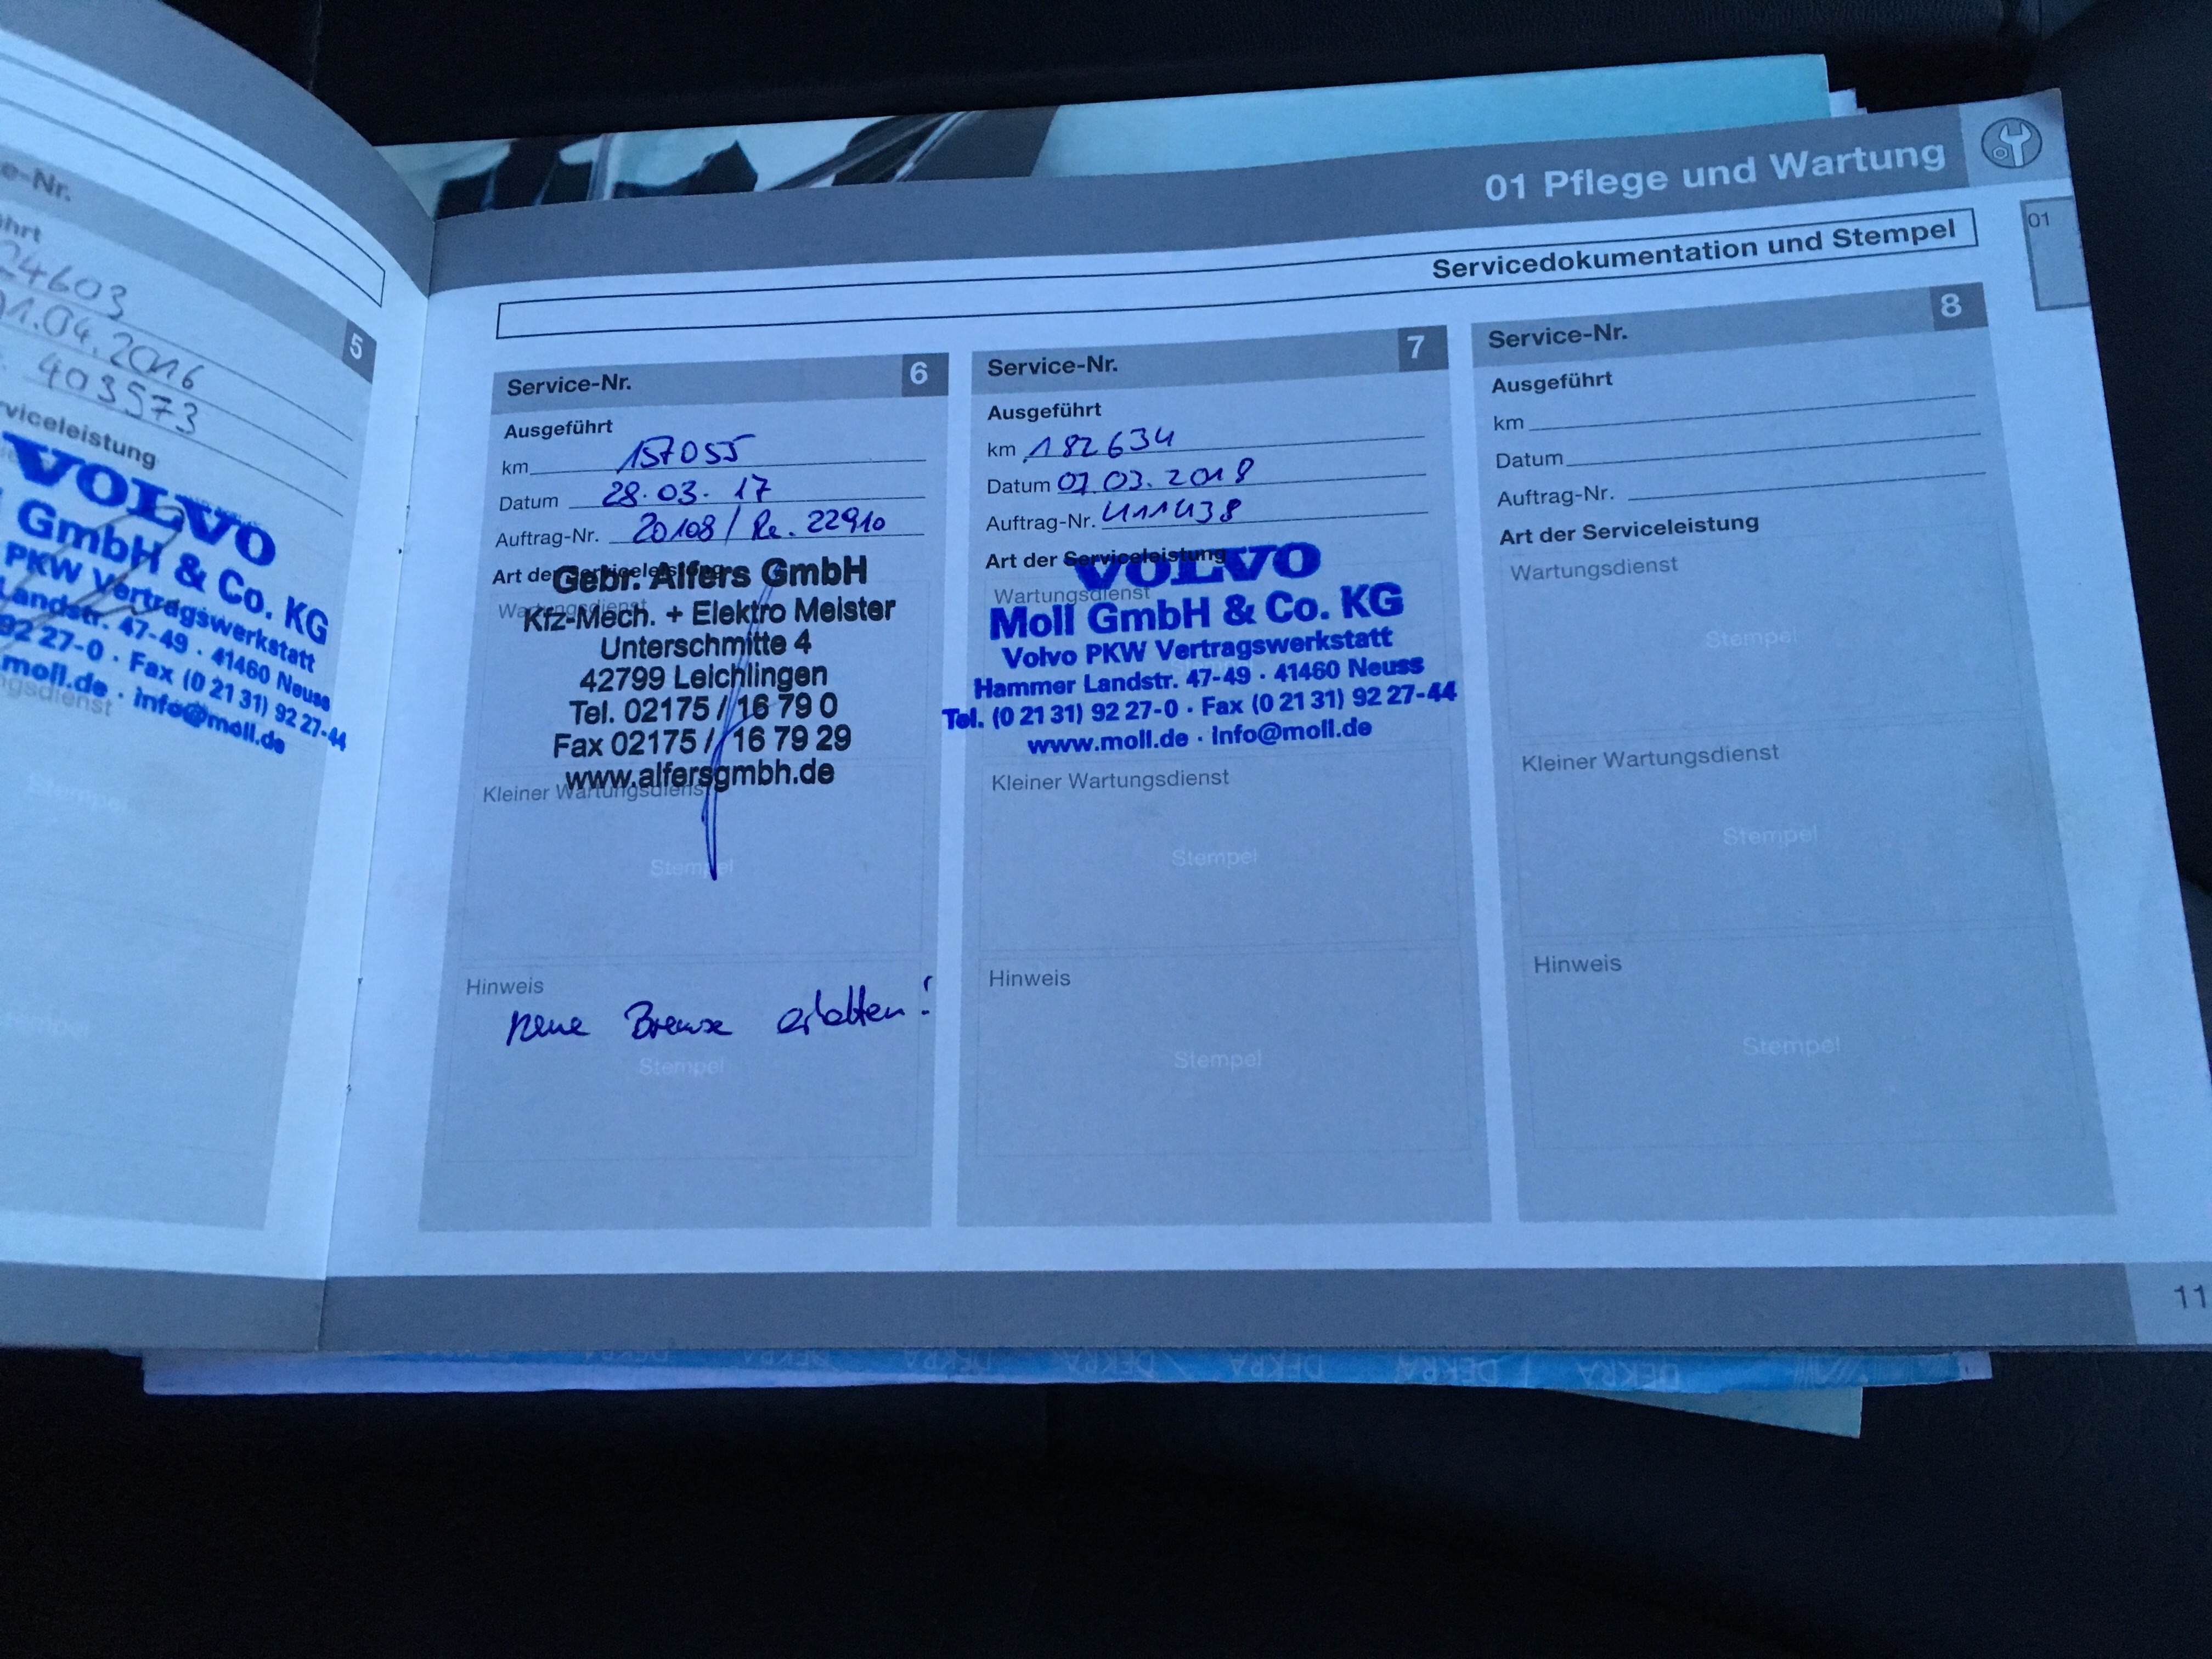 e-Nr.
5
hrt
24603
01.04.2016
403573
viceleistung
VOLVO
GmbH & Co. KG
PKW Vertragswerkstatt
Landstr. 47-49 · 41460 Neuss
92 27-0 · Fax (0 21 31) 92 27-44
moll.de · info@moll.de
ngsdienst
Stempel
Stempel
01 Pflege und Wartung
Servicedokumentation und Stempel
01
Service-Nr. 6
Ausgeführt
km 157055
Datum 28.03.17
Auftrag-Nr. 20108 / Re. 22910
Art der Serviceleistung
Wartungsdienst
Gebr. Alfers GmbH
Kfz-Mech. + Elektro Meister
Unterschmitte 4
42799 Leichlingen
Tel. 02175 / 16 79 0
Fax 02175 / 16 79 29
www.alfersgmbh.de
Kleiner Wartungsdienst
Stempel
Hinweis
neue Bremse erhalten!
Stempel
Service-Nr. 7
Ausgeführt
km 182634
Datum 07.03.2018
Auftrag-Nr. 411438
Art der Serviceleistung
Wartungsdienst
VOLVO
Moll GmbH & Co. KG
Volvo PKW Vertragswerkstatt
Hammer Landstr. 47-49 · 41460 Neuss
Tel. (0 21 31) 92 27-0 · Fax (0 21 31) 92 27-44
www.moll.de · info@moll.de
Kleiner Wartungsdienst
Stempel
Hinweis
Stempel
Service-Nr. 8
Ausgeführt
km
Datum
Auftrag-Nr.
Art der Serviceleistung
Wartungsdienst
Stempel
Kleiner Wartungsdienst
Stempel
Hinweis
Stempel
11
DEKRA DEKRA DEKRA DEKRA DEKRA DEKRA DEKRA DEKRA DEKRA